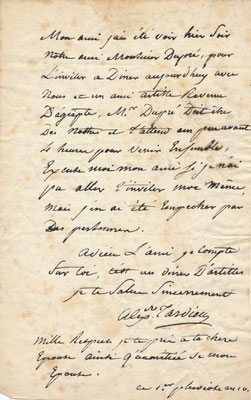 Mon ami j'ai été voir hier soir
Notre ami Monsieur Dupré, pour
L'inviter a Diner aujourd'huy avec
Nous et un ami artiste Revenu
D'égipte, Mr. Dupré Doit être
Des Notres et t'attend un peu avant
4 heures pour venir Ensemble,
Excuse moi mon ami si je n'ai
pu aller t'inviter moi Même,
Mais j'en ai été Empecher par
Des personnes.
adieu L'ami je Compte
Sur toi, c'est un diner D'artistes
je te Salue Sincerement
Alexre Tardieu
Mille Respects je te prie a ta chere
Epouse ainsi de moi
Epouse.
ce 1er